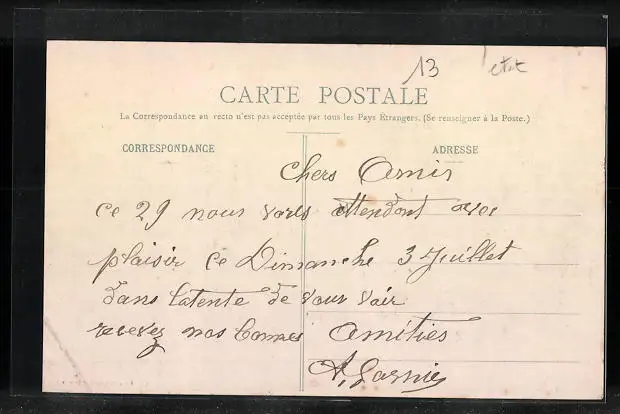 13 etat
CARTE POSTALE
La Correspondance au recto n'est pas acceptée par tous les Pays Étrangers. (Se renseigner à la Poste.)
CORRESPONDANCE
ADRESSE
Chers Amis
Ce 29 nous vous attendont avec
plaisir Ce Dimanche 3 Juillet
dans latente de vour voir
recevez nos bonnes amitiés
Garnier